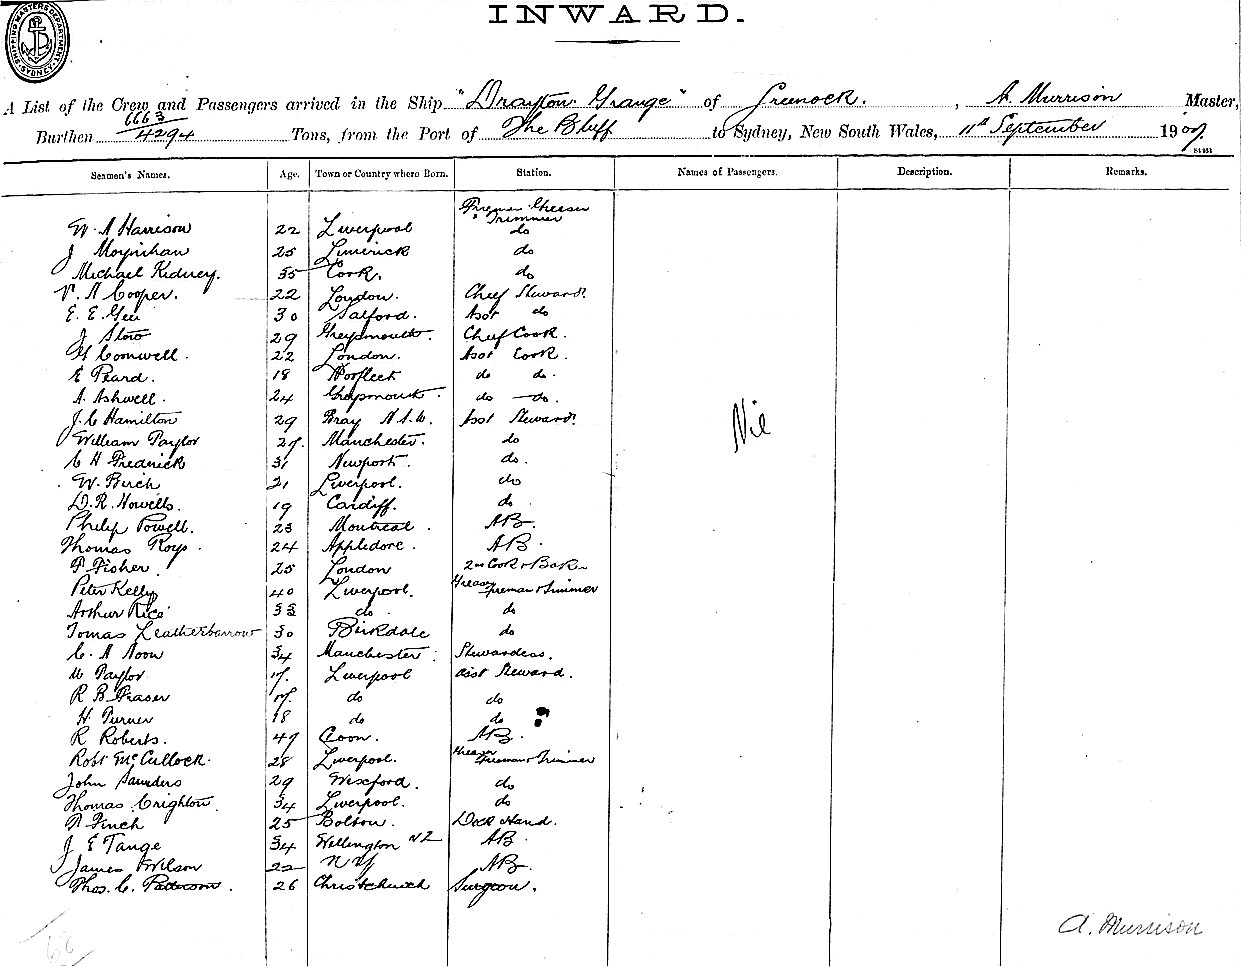 SHIPPING MASTERS DEPARTMENT SYDNEY
INWARD.
A List of the Crew and Passengers arrived in the Ship "Drayton Grange" of Greenock. , A. Murrison Master,
6663
Burthen 4294 Tons, from the Port of The Bluff to Sydney, New South Wales, 11th September 1907
Seamen's Names. Age. Town or Country where Born. Station. Names of Passengers. Description. Remarks.
Fireman Greaser
" Trimmer
W. A Harrison 22 Liverpool do
J Moynihan 25 Limerick do
Michael Kidney. 35 Cork. do
V. A Cooper. 22 London. Chief Steward.
E. E. Gee 30 Salford. Asst do
J Stow 29 Chief Cook.
H Cornwell. 22 London. Asst Cook.
E Peard. 18 do do.
A. Ashwell. 24 do do.
J. C Hamilton 29 Bray Asst Steward.
William Taylor 27. Manchester. do
C H Fredrick 31 Newport. do.
W. Birch 21 Liverpool. do
D. R. Howells. 19 Cardiff. do.
Philip Powell. 23 Montreal. AB.
Thomas 24 Appledore. AB.
Fisher 25 London 2nd Cook & Baker
Peter Kelly 40 Liverpool. Greaser Fireman & Trimmer
Arthur Rice 33 do. do
Tomas Leatherbarrow 30 Birkdale do
C. A Noon 34 Manchester. Stewardess.
W Taylor 17. Liverpool asst Steward.
R B Fraser 17. do do
H. Turner 18 do do
R Roberts. 49 AB.
Robt McCullock. 28 Liverpool. Greaser Fireman & Trimmer
John Saunders 29 Wexford. do
Thomas Crighton. 34 Liverpool. do
Finch 25 Bolton. Deck Hand.
J E Tange 34 Wellington NZ AB.
James Wilson 22 N Y AB.
Thos. C. Patterson. 26 Christchurch Surgeon.
Nil
A. Murrison